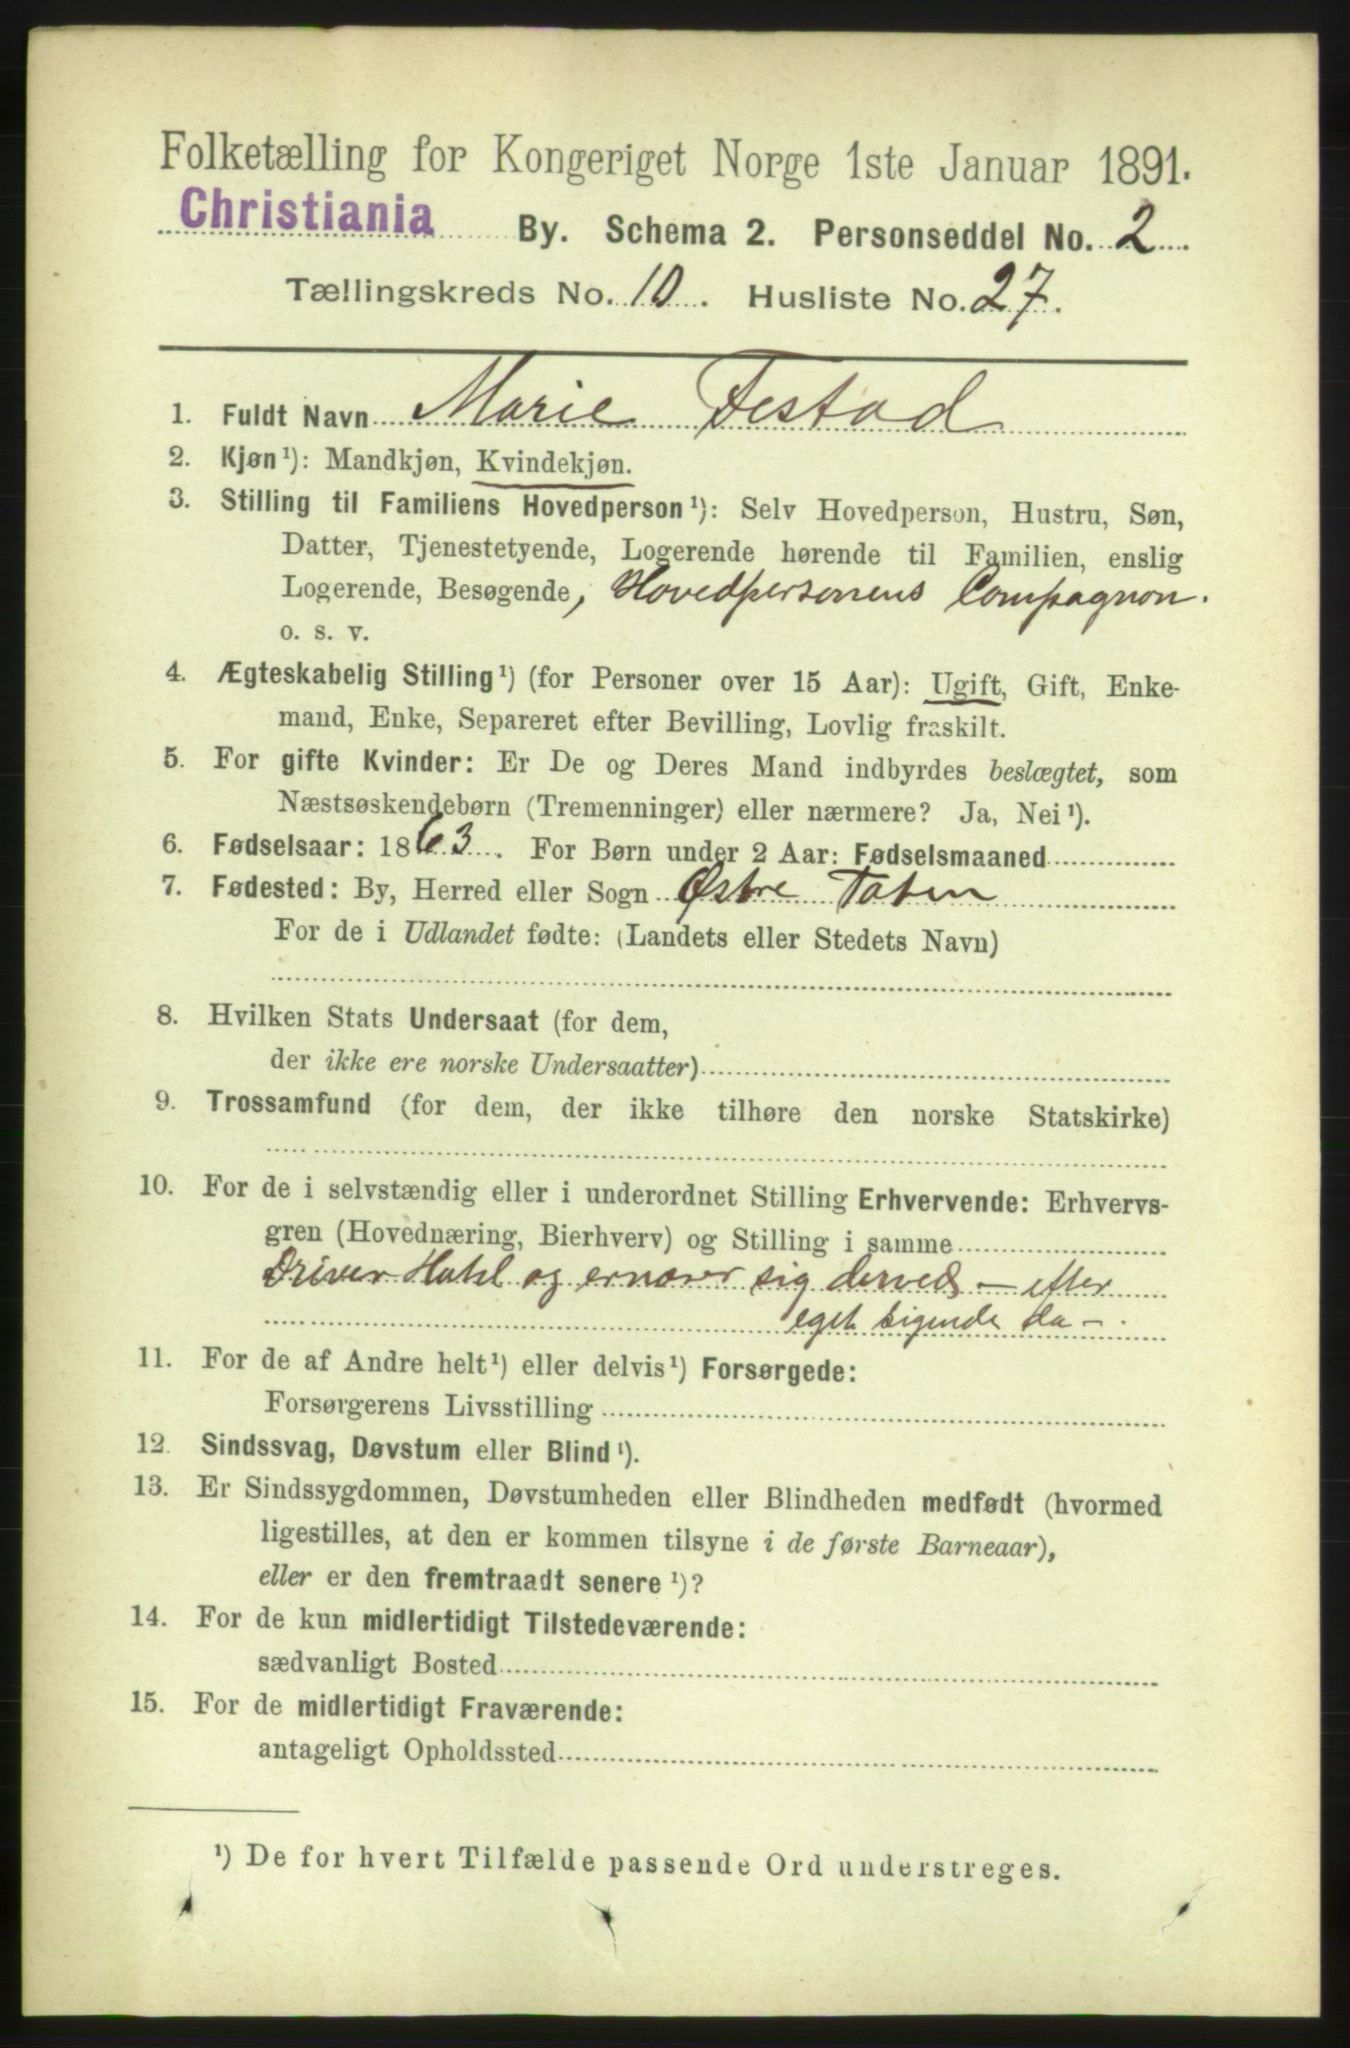 Folketælling for Kongeriget Norge 1ste Januar 1891.
Christiania By. Schema 2. Personseddel No. 2.
Tællingskreds No. 10. Husliste No. 27.
1. Fuldt Navn Marie Festad
2. Kjøn¹): Mandkjøn, Kvindekjøn.
3. Stilling til Familiens Hovedperson¹): Selv Hovedperson, Hustru, Søn,
Datter, Tjenestetyende, Logerende hørende til Familien, enslig
Logerende, Besøgende, Hovedpersonens Compagnon.
o. s. v.
4. Ægteskabelig Stilling¹) (for Personer over 15 Aar): Ugift, Gift, Enke-
mand, Enke, Separeret efter Bevilling, Lovlig fraskilt.
5. For gifte Kvinder: Er De og Deres Mand indbyrdes beslægtet, som
Næstsøskendebørn (Tremenninger) eller nærmere? Ja, Nei¹).
6. Fødselsaar: 1863. For Børn under 2 Aar: Fødselsmaaned
7. Fødested: By, Herred eller Sogn Østre Toten
For de i Udlandet fødte: (Landets eller Stedets Navn)
8. Hvilken Stats Undersaat (for dem,
der ikke ere norske Undersaatter)
9. Trossamfund (for dem, der ikke tilhøre den norske Statskirke)
10. For de i selvstændig eller i underordnet Stilling Erhvervende: Erhvervs-
gren (Hovednæring, Bierhverv) og Stilling i samme
Driver Hotel og ernærer sig derved - efter
eget sigende da -.
11. For de af Andre helt¹) eller delvis¹) Forsørgede:
Forsørgerens Livsstilling
12. Sindssvag, Døvstum eller Blind¹).
13. Er Sindssygdommen, Døvstumheden eller Blindheden medfødt (hvormed
ligestilles, at den er kommen tilsyne i de første Barneaar),
eller er den fremtraadt senere¹)?
14. For de kun midlertidigt Tilstedeværende:
sædvanligt Bosted
15. For de midlertidigt Fraværende:
antageligt Opholdssted
¹) De for hvert Tilfælde passende Ord understreges.